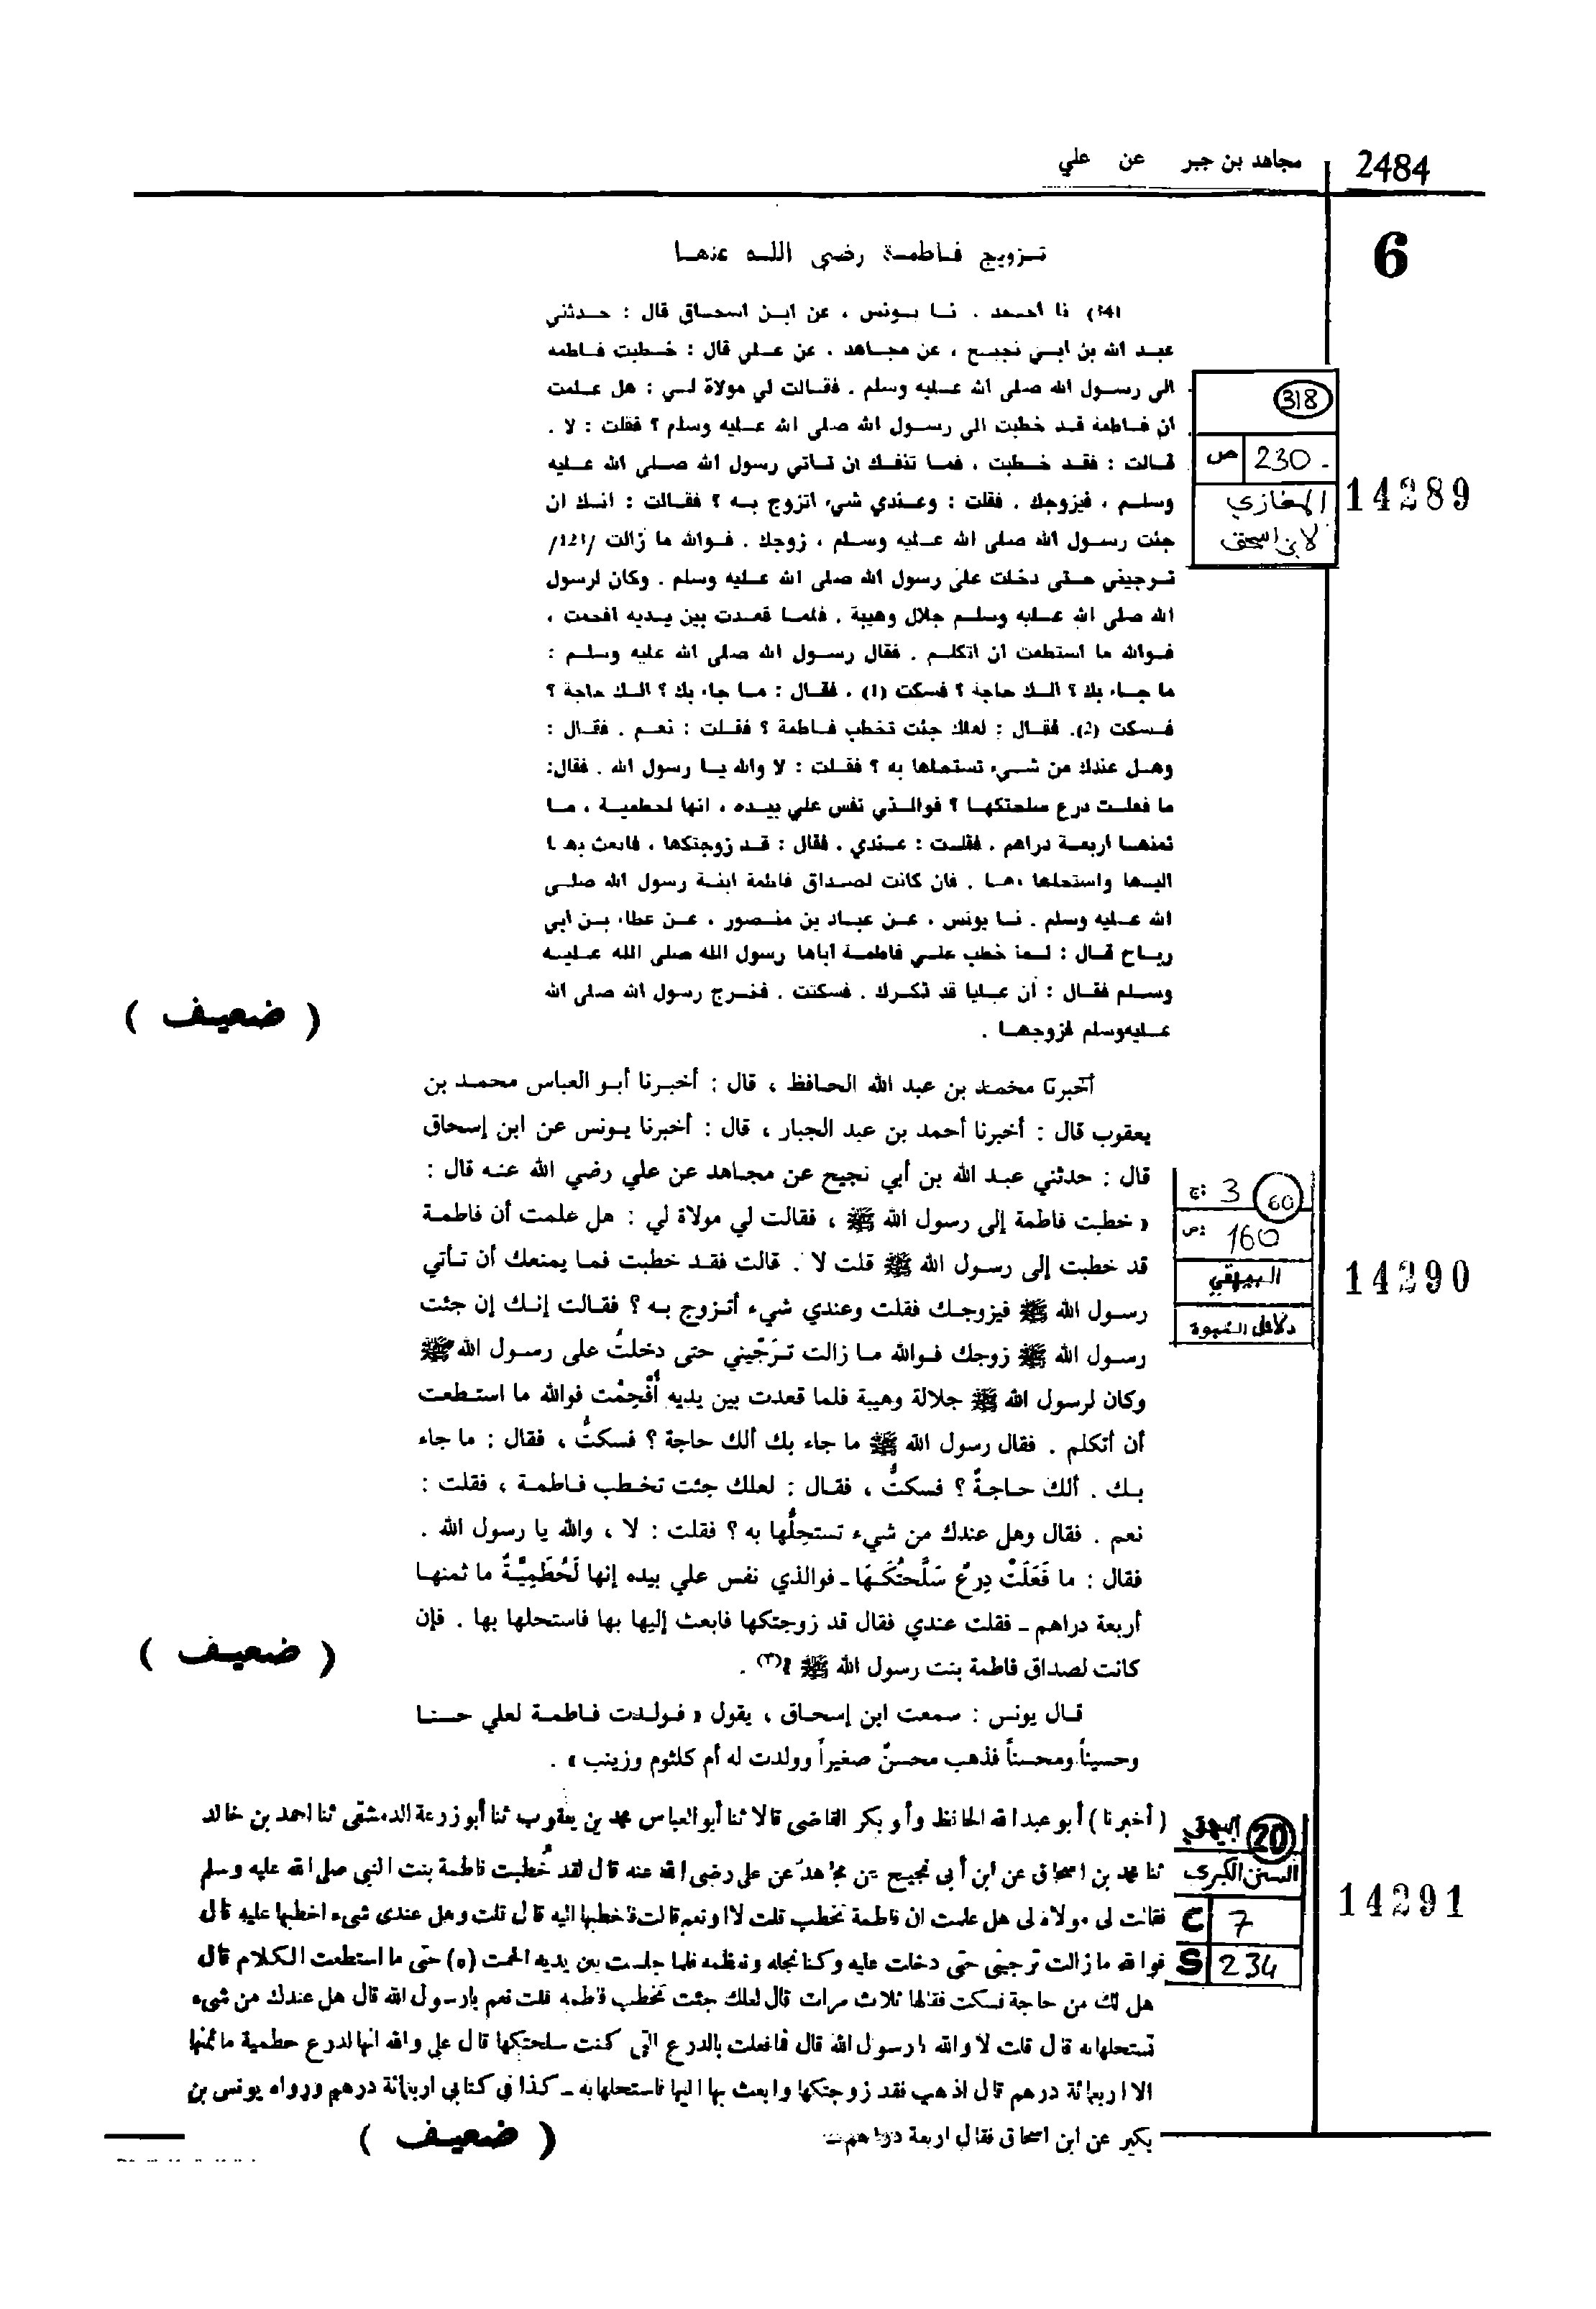 2484
مجاهد بن جبر عن علي
6
تزويج فاطمة رضي الله عنها
نا احمد . نا يونس ، عن ابن اسحاق قال : حدثني
عبد الله بن ابي نجيح ، عن مجاهد . عن علي قال : خطبت فاطمه
الى رسول الله صلى الله عليه وسلم . فقالت لي مولاة لي : هل علمت
ان فاطمة قد خطبت الى رسول الله صلى الله عليه وسلم ؟ فقلت : لا .
قالت : فقد خطبت ، فما ان تاتي رسول الله صلى الله عليه
وسلم ، فيزوجك . فقلت : وعندي شيء اتزوج به ؟ فقالت : انك ان
جئت رسول الله صلى الله عليه وسلم ، زوجك . فوالله ما زالت /121/
ترجيني حتى دخلت على رسول الله صلى الله عليه وسلم . وكان لرسول
الله صلى الله عليه وسلم جلال وهيبة . فلما قعدت بين يديه افحمت ،
فوالله ما استطعت ان اتكلم . فقال رسول الله صلى الله عليه وسلم :
ما جاء بك ؟ الك حاجة ؟ فسكت (1) . فقال : ما جاء بك ؟ الك حاجة ؟
فسكت (2). فقال : لعلك جئت تخطب فاطمة ؟ فقلت : نعم . فقال :
وهل عندك من شيء تستحلها به ؟ فقلت : لا والله يا رسول الله . فقال:
ما فعلت درع سلحتكها ؟ فوالذي نفس علي بيده ، انها لحطمية ، ما
ثمنها اربعة دراهم . فقلت : عندي . فقال : قد زوجتكها ، فابعث بها
اليها واستحلها بها . فان كانت لصداق فاطمة ابنة رسول الله صلى
الله عليه وسلم . نا يونس ، عن عباد بن منصور ، عن عطاء بن ابي
رباح قال : لما خطب علي فاطمة اباها رسول الله صلى الله عليه
وسلم فقال : ان عليا قد ذكرك . فسكتت . فخرج رسول الله صلى الله
عليه وسلم فزوجها .
( ضعيف )
318
ص 230
المغازي
لابن اسحق
14289
أخبرنا محمد بن عبد الله الحافظ ، قال : أخبرنا أبو العباس محمد بن
يعقوب قال : أخبرنا أحمد بن عبد الجبار ، قال : أخبرنا يونس عن ابن إسحاق
قال : حدثني عبد الله بن أبي نجيح عن مجاهد عن علي رضي الله عنه قال :
« خطبت فاطمة إلى رسول الله ﷺ ، فقالت لي مولاة لي : هل علمت أن فاطمة
قد خطبت إلى رسول الله ﷺ قلت لا . قالت فقد خطبت فما يمنعك أن تأتي
رسول الله ﷺ فيزوجك فقلت وعندي شيء أتزوج به ؟ فقالت إنك إن جئت
رسول الله ﷺ زوجك فوالله ما زالت ترَجّيني حتى دخلتُ على رسول الله ﷺ
وكان لرسول الله ﷺ جلالة وهيبة فلما قعدت بين يديه أُفْحِمْت فوالله ما استطعت
أن أتكلم . فقال رسول الله ﷺ ما جاء بك ألك حاجة ؟ فسكتُّ ، فقال : ما جاء
بك . ألك حاجةٌ ؟ فسكتُّ ، فقال : لعلك جئت تخطب فاطمة ، فقلت :
نعم . فقال وهل عندك من شيء تستحِلُّها به ؟ فقلت : لا ، والله يا رسول الله .
فقال : ما فَعَلَتْ دِرعٌ سَلَّحتُكَهَا ـ فوالذي نفس علي بيده إنها لَحُطَمِيَّةٌ ما ثمنها
أربعة دراهم ـ فقلت عندي فقال قد زوجتكها فابعث إليها بها فاستحلها بها . فإن
كانت لصداق فاطمة بنت رسول الله ﷺ »(٣) .
( ضعيف )
قال يونس : سمعت ابن إسحاق ، يقول « فولدت فاطمة لعلي حسنا
وحسيناً ومحسناً فذهب محسنٌ صغيراً وولدت له أم كلثوم وزينب » .
60
ج: 3
ص: 160
البيهقي
دلائل النبوة
14290
( أخبرنا ) أبو عبد الله الحافظ وأبو بكر القاضى قالا ثنا أبو العباس محمد بن يعقوب ثنا أبو زرعة الدمشقى ثنا احمد بن خالد
ثنا محمد بن اسحاق عن ابن أبى نجيح عن مجاهد عن على رضى الله عنه قال لقد خُطبت فاطمة بنت النبى صلى الله عليه وسلم
فقالت لى مولاة لى هل علمت ان فاطمة تخطب قلت لا او نعم قالت فاخطبها اليه قال قلت وهل عندى شىء اخطبها عليه قال
فوالله ما زالت ترجينى حتى دخلت عليه وكنا نجله ونعظمه فلما جلست بين يديه الجمت (٥) حتى ما استطعت الكلام قال
هل لك من حاجة فسكت فقالها ثلاث مرات قال لعلك جئت تخطب فاطمه قلت نعم يارسول الله قال هل عندك من شىء
تستحلها به قال قلت لا والله يا رسول الله قال فما فعلت بالدرع التى كنت سلحتكها قال على والله انها لدرع حطمية ما ثمنها
الا اربعمائة درهم قال اذهب فقد زوجتكها وابعث بها اليها فاستحلها به ـ كذا فى كتابى اربعمائة درهم ورواه يونس بن
بكير عن ابن اسحاق فقال اربعة دراهم
( ضعيف )
20
البيهقي
السنن الكبرى
C 7
S 234
14291